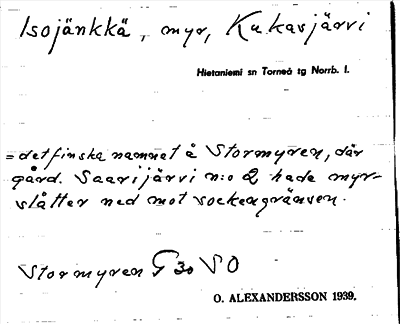 Isojänkkä, myr, Kukasjärvi
Hietaniemi sn Torneå tg Norrb. l.
= det finska namnet å Stormyren, där
gård. Saarijärvi n:o 2 hade myr-
slåtter ned mot sockengränsen.
Stormyren G 30 SO
O. ALEXANDERSSON 1939.